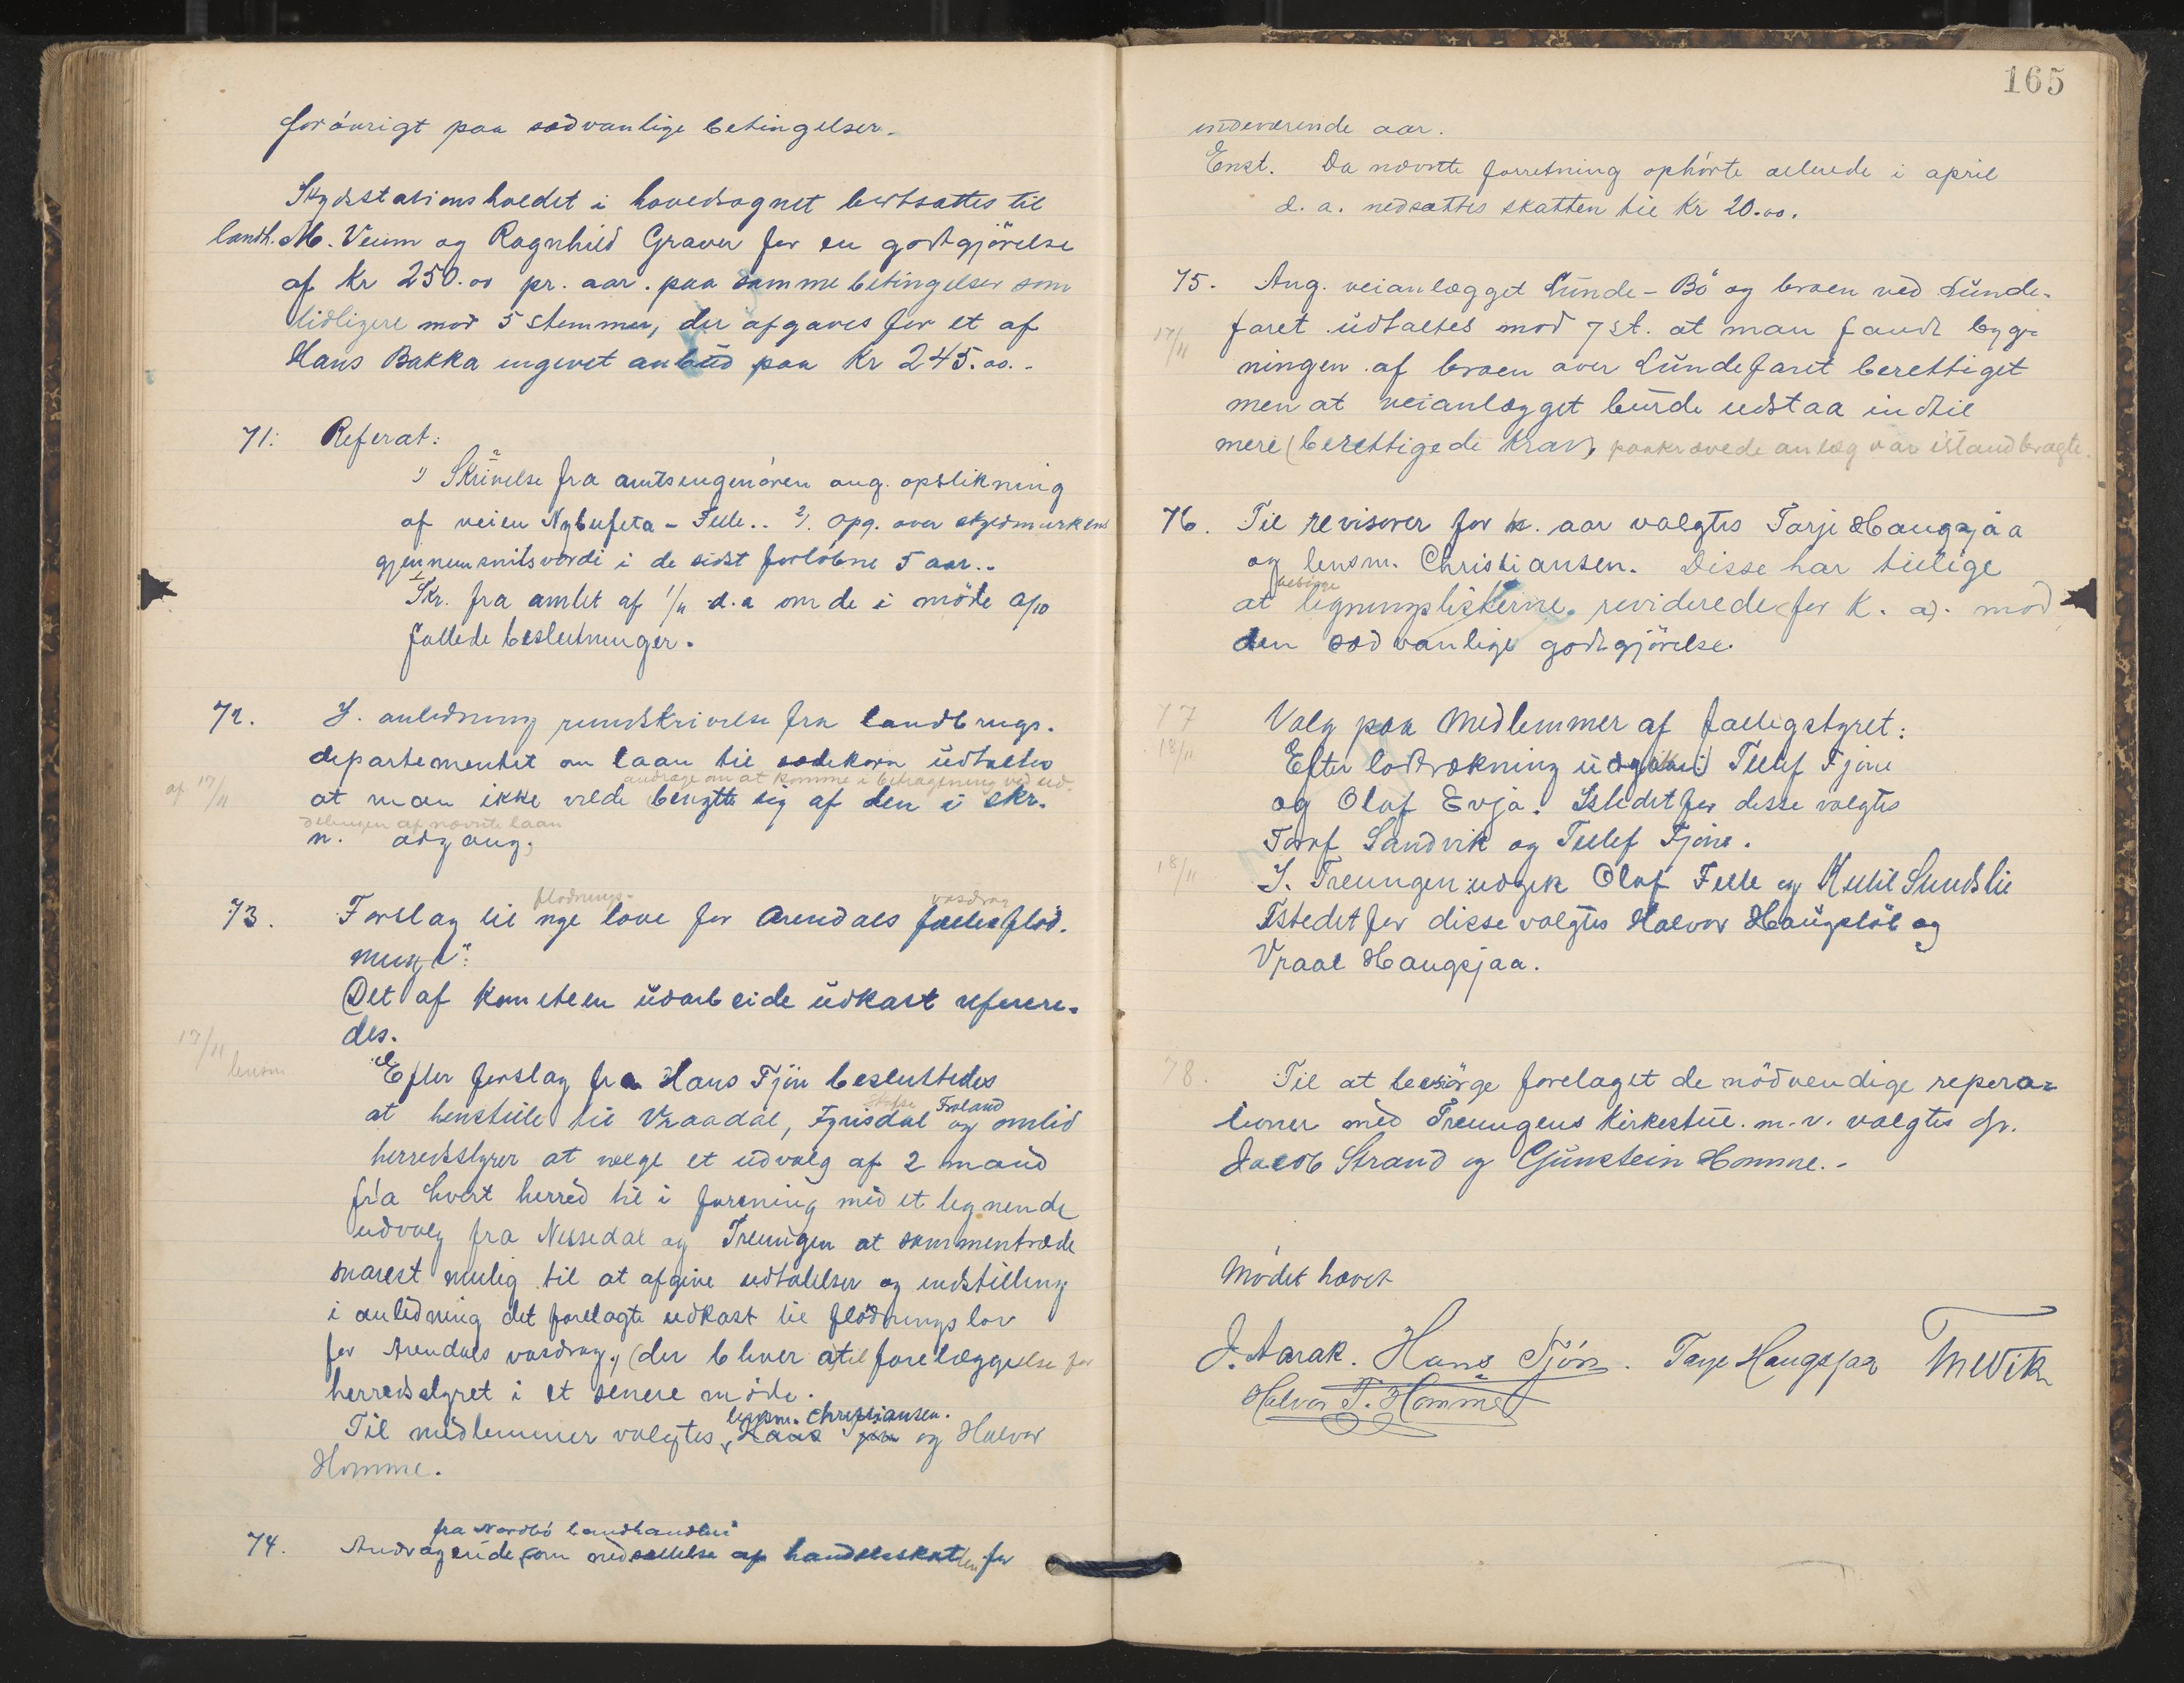 forövrigt paa sædvanlige betingelser.
Skydsstationsholdet i hovedsognet bortsattes til
landh. M. Veum og Ragnhild Graver for en godtgjörelse
af Kr 250.00 pr. aar. paa samme betingelser som
tidligere mod 5 stemmer, der afgaves for et af
Hans Bakka ingivet anbud paa Kr 245.00.-
71. Referat:
1) Skrivelse fra amtsingeniören ang. opstikning
af veien Nybufeta - Felle.. 2). Opg. over
gjennemsnitsværdi i de sidst forløbne 5 aar..
Skr. fra amtet af 1/11 d.a om de i møde
fattede beslutninger.
72. I. anledning rundskrivelse fra landbrugs-
departementet om laan til sædekorn udtaltes
andrage om at komme i betragtning ved ud-
af 17/11
at man ikke vilde benytte sig af den i skr.
delingen af nævnte laan
n. adgang,
flødnings- vasdrag
73. Forslag til nye love for Arendals fælleflöd-
ning":
Det af komiteen udarbeide udkast refere-
des.
17/11 lensm
Efter forslag fra Hans Tjön besluttedes
Froland
at henstille til Vraadal, Fyrisdal og omlid
herredsstyrer at vælge et udvalg af 2 mand
fra hvert herred til i forening med et lignende
udvalg fra Nissedal og Treungen at sammentræde
snarest mulig til at afgive udtalelser og indstilling
i anledning det forelagte udkast til flødningslov
for Arendals vasdrag, (der bliver at til forelæggelse for
herredsstyret i et senere møde.
lensm. Christiansen.
Til medlemmer valgtes, Hans Tjön og Halvor
Homme.
fra Nordbö landhandleri
74. Andragende, om nedsættelse af handelsskatten for
165
indeværende aar.
Enst. Da nævnte forretning ophörte allerede i april
d. a. nedsattes skatten til Kr 20.00.
75. Ang. veianlægget Lunde - Bö og broen ved Lunde-
17/11
faret udtaltes mod 7 st. at man fandt byg-
ningen af broen over Lundefaret berettiget
men at veianlægget burde udstaa indtil
mere (berettigede krav, paakrævede anlæg var istandbragte.
76. Til revisorer for k. aar valgtes Tarje Haugsjaa
og lensm. Christiansen. Disse har tillige
at legningslisterne reviderede for k. a). mod
den sædvanlige godtgjörelse.
77 Valg paa Medlemmer af fattigstyret:
18/11
Efter lodtrækning udgik Tellef Tjöne
og Olaf Evja. Istedet for disse valgtes
Torof Sandvik og Tellef Tjöne.
18/11
I. Treungen udgik Olaf Felle og Ketil Sundslie
Istedet for disse valgtes Halvor Haugslöl og
Vraal Haugsjaa.
78. Til at besörge foretaget de nödvendige repera-
tioner med Treungens Kirkestue. m. v. valgtes Hr.
Jacob Strand og Gunstein Homme.-
Mödet hævet
J. Aarak. Hans Tjön. Tarje Haugsjaa
Halvor T. Homme